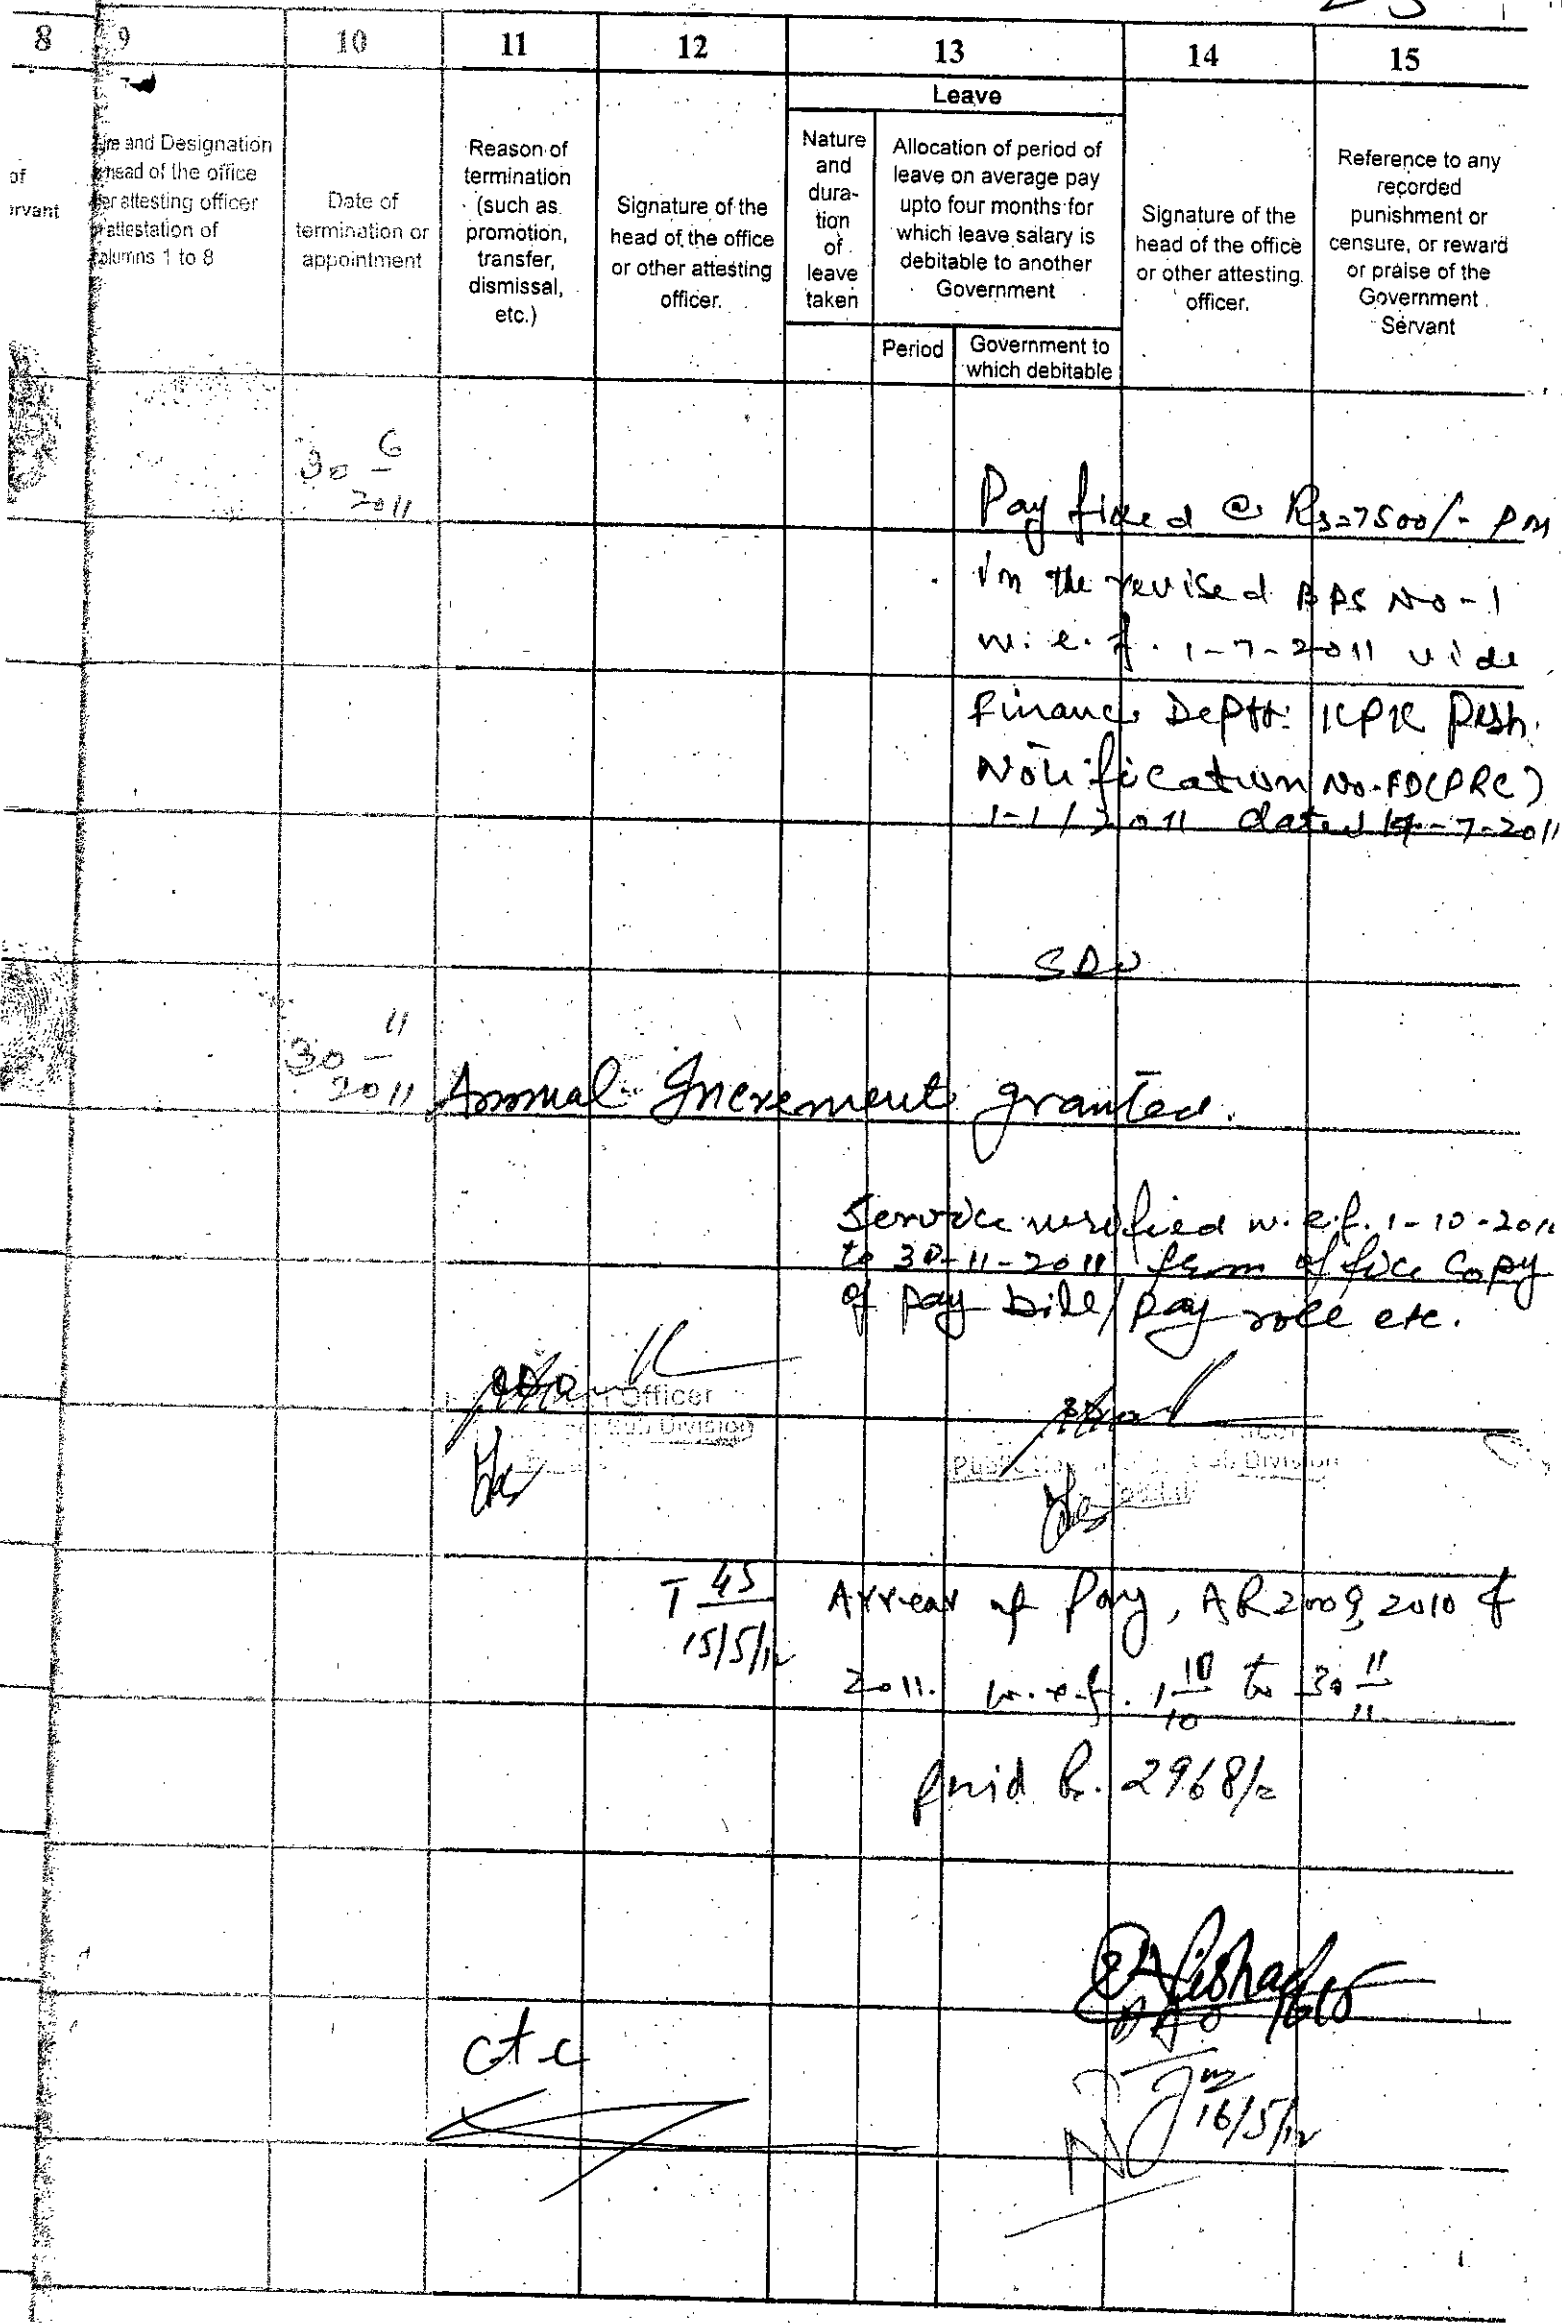 8 9 10 11 12 13 14 15
Leave
of
servant
and Designation
head of the office
or attesting officer
attestation of
columns 1 to 8
Date of
termination or
appointment
Reason of
termination
(such as
promotion,
transfer,
dismissal,
etc.)
Signature of the
head of the office
or other attesting
officer.
Nature
and
dura-
tion
of
leave
taken
Allocation of period of
leave on average pay
upto four months for
which leave salary is
debitable to another
Government
Period
Government to
which debitable
Signature of the
head of the office
or other attesting
officer.
Reference to any
recorded
punishment or
censure, or reward
or praise of the
Government
Servant
30 6
2011
Pay fixed @ Rs=7500/- PM
in the revised BPS No-1
w.e.f. 1-7-2011 vide
Finance Deptt: KPK Pesh.
Notification No.FD(PRC)
1-1/2011 dated 14-7-2011
SDO
30 11
2011
Annual Increment granted.
Service verified w.e.f. 1-10-2011
to 30-11-2011 from office copy
of pay bill/pay role etc.
Officer
Sub Division
Sub Division
T 45
15/5/12
Arrear of Pay, AR 2009, 2010 &
2011. w.e.f. 1 10/10 to 30 11/11
paid Rs. 2968/=
DAO
ctc
16/5/12